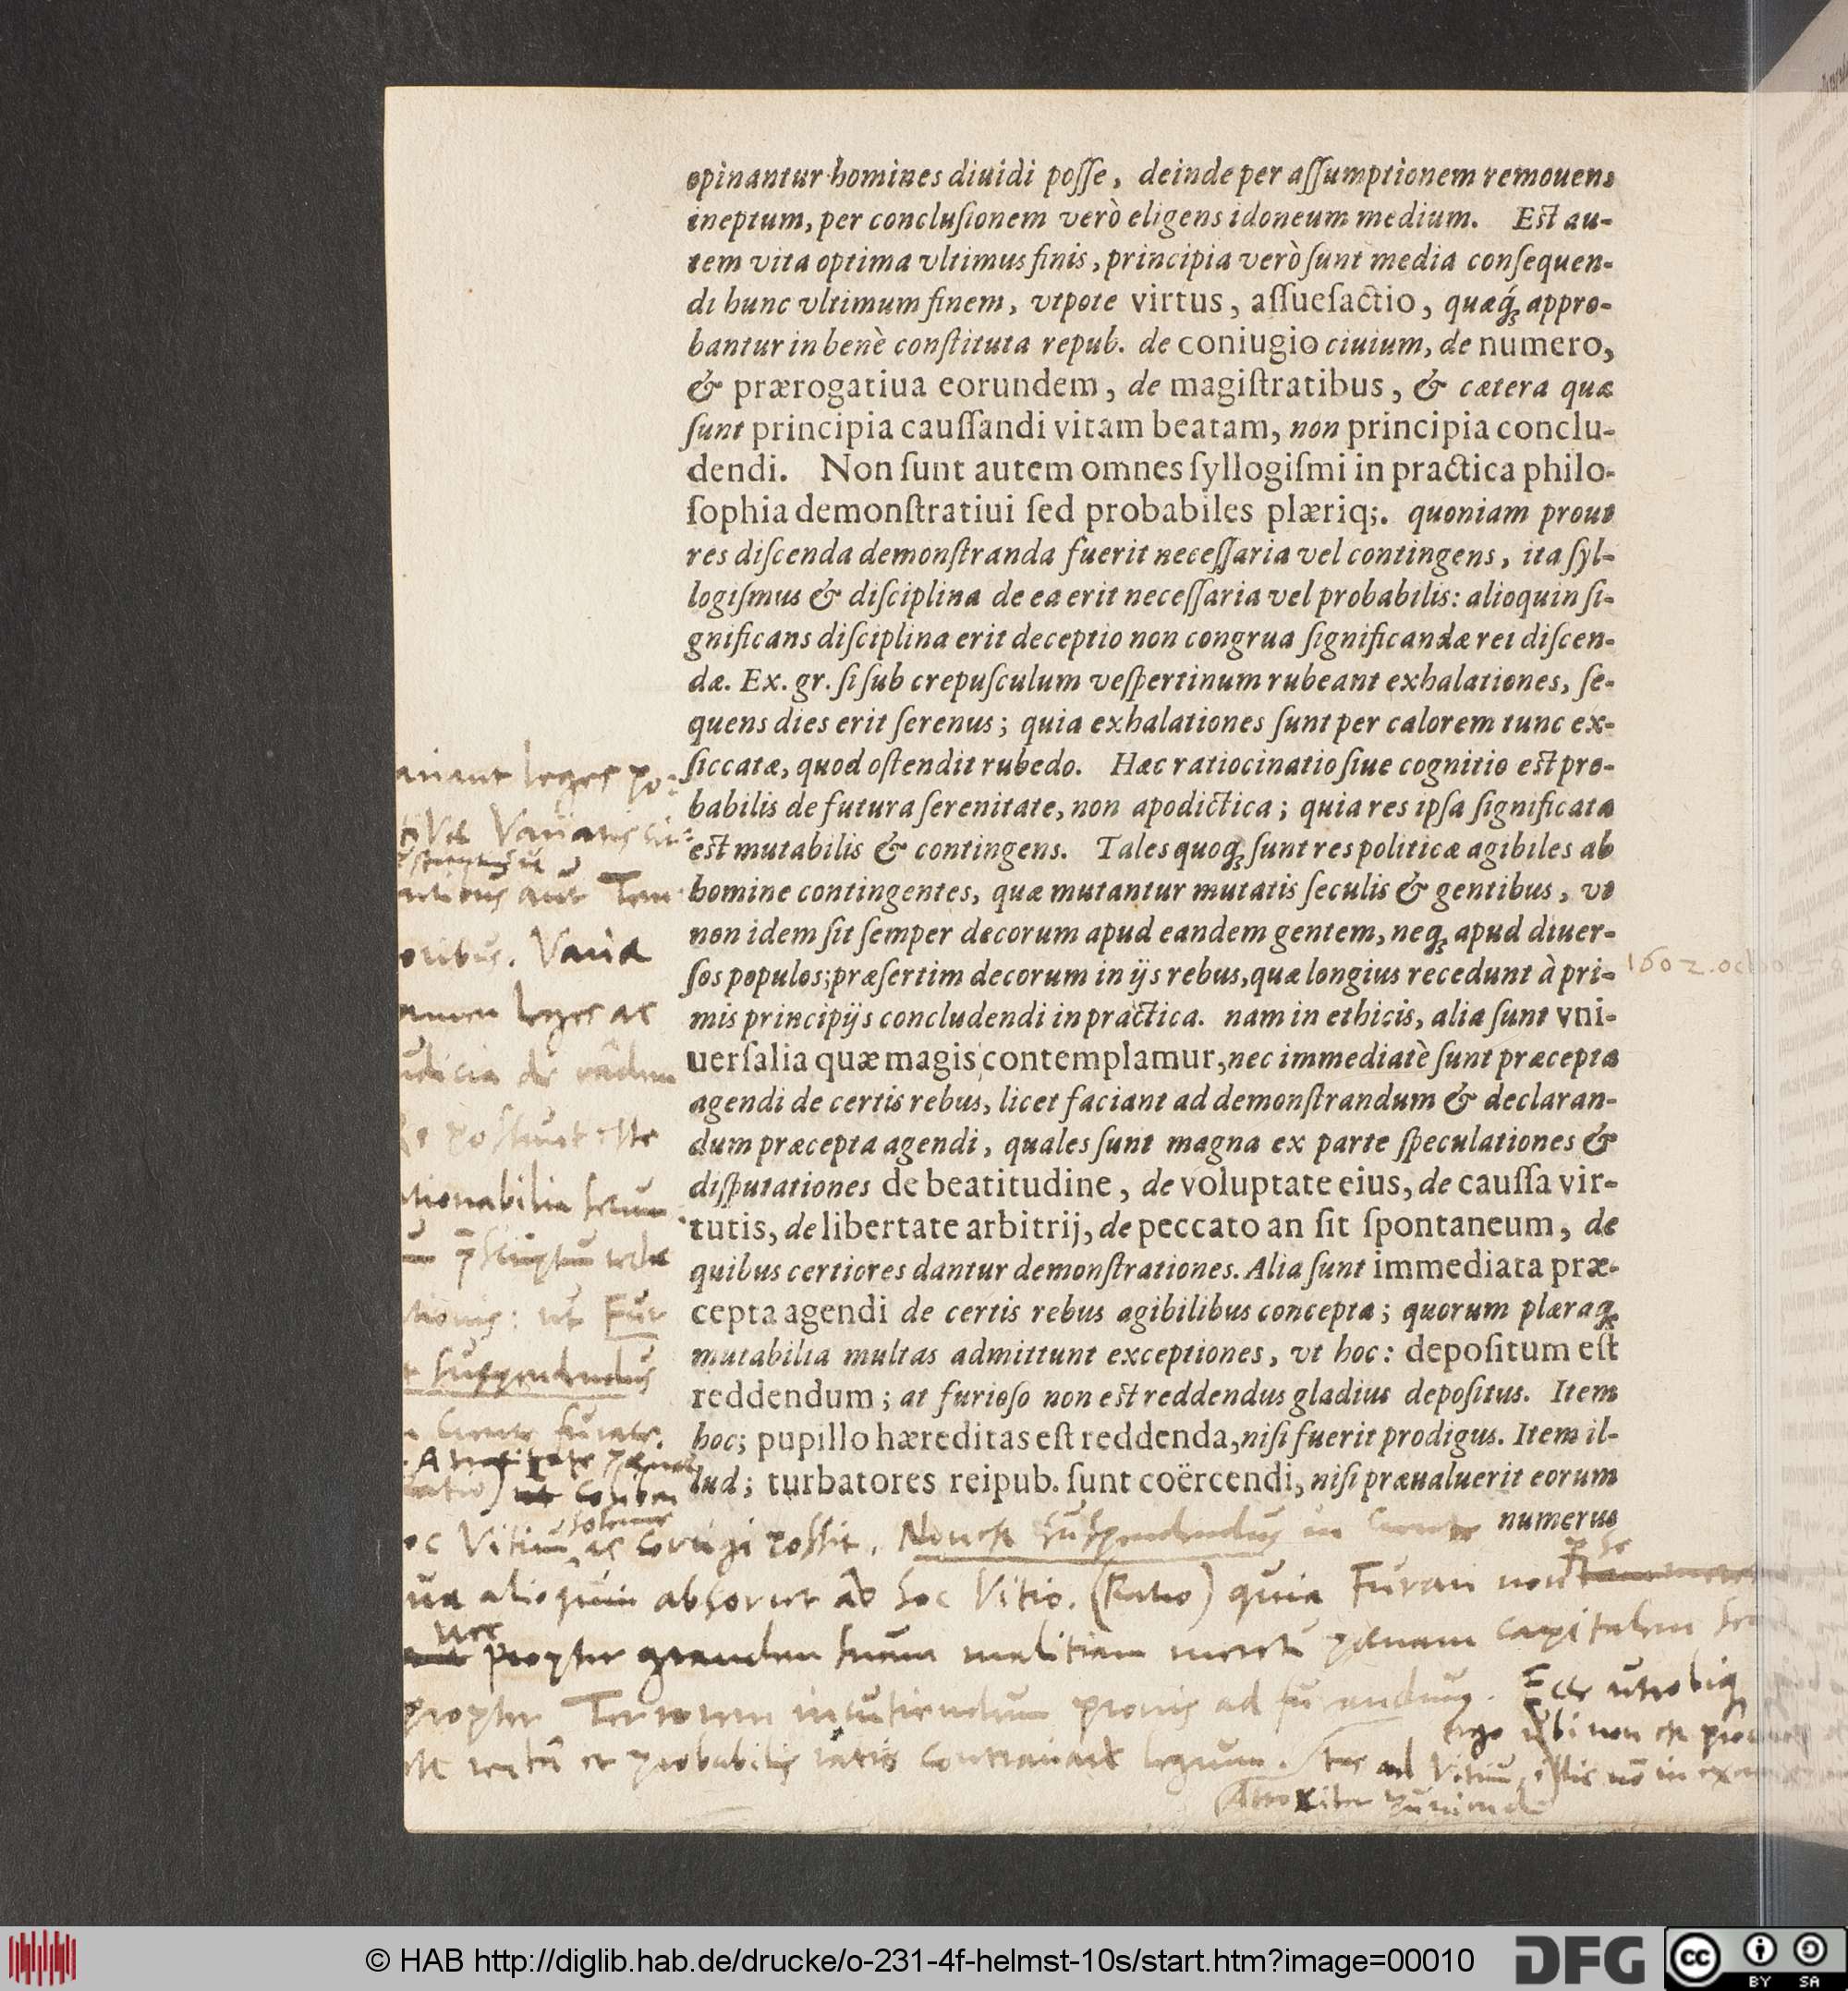 opinantur homines diuidi poſſe, deinde per aſſumptionem remouens
ineptum, per concluſionem verò eligens idoneum medium. Eſt au-
tem vita optima vltimus finis, principia verò ſunt media conſequen-
di hunc vltimum finem, vtpote virtus, aſſuefactio, quæq́; appro-
bantur in benè conſtituta repub. de coniugio ciuium, de numero,
& prærogatiua eorundem, de magiſtratibus, & cætera quæ
ſunt principia cauſſandi vitam beatam, non principia conclu-
dendi. Non ſunt autem omnes ſyllogiſmi in practica philo-
ſophia demonſtratiui ſed probabiles plæriq;. quoniam prout
res diſcenda demonſtranda fuerit neceſſaria vel contingens, ita ſyl-
logiſmus & diſciplina de ea erit neceſſaria vel probabilis: alioquin ſi-
gnificans diſciplina erit deceptio non congrua ſignificandæ rei diſcen-
dæ. Ex. gr. ſi ſub crepuſculum veſpertinum rubeant exhalationes, ſe-
quens dies erit ſerenus; quia exhalationes ſunt per calorem tunc ex-
ſiccatæ, quod oſtendit rubedo. Hæc ratiocinatio ſiue cognitio eſt pro-
babilis de futura ſerenitate, non apodictica; quia res ipſa ſignificata
eſt mutabilis & contingens. Tales quoq; ſunt res politicæ agibiles ab
homine contingentes, quæ mutantur mutatis ſeculis & gentibus, vt
non idem ſit ſemper decorum apud eandem gentem, neq; apud diuer-
ſos populos; præſertim decorum in ijs rebus, quæ longius recedunt à pri-
mis principijs concludendi in practica. nam in ethicis, alia ſunt vni-
uerſalia quæ magis contemplamur, nec immediatè ſunt præcepta
agendi de certis rebus, licet faciant ad demonſtrandum & declaran-
dum præcepta agendi, quales ſunt magna ex parte ſpeculationes &
diſputationes de beatitudine, de voluptate eius, de cauſſa vir-
tutis, de libertate arbitrij, de peccato an ſit ſpontaneum, de
quibus certiores dantur demonſtrationes. Alia ſunt immediata præ-
cepta agendi de certis rebus agibilibus concepta; quorum plæraq;
mutabilia multas admittunt exceptiones, vt hoc: depoſitum eſt
reddendum; at furioſo non eſt reddendus gladius depoſitus. Item
hoc; pupillo hæreditas eſt reddenda, niſi fuerit prodigus. Item il-
lud; turbatores reipub. ſunt coërcendi, niſi præualuerit eorum
numerus
ariant leges po-
Varia
amen leges ac
possunt esse
ut Fur
suspendendus
oc Vitium ac corrigi possit. Non est suspendendus in
alioquin abhorret ab hoc Vitio. (Ratio) quia Furari non
nec
propter grandem suam malitiam meretur pœnam capitalem
propter Terrorem incutiendum pronis ad furandum. Ecce utrobiq
ergo ubi non est
et probabilis ratio contrariarum legum.
ad Vitium illic non in
1602.
© HAB http://diglib.hab.de/drucke/o-231-4f-helmst-10s/start.htm?image=00010
DFG
cc
BY SA